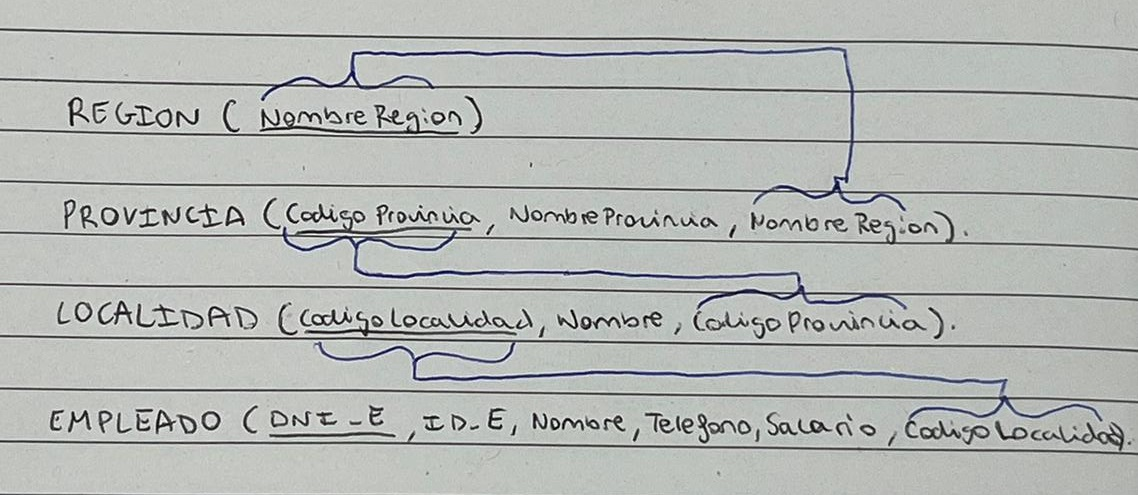 REGION ( Nombre Region )
PROVINCIA ( Codigo Provincia , Nombre Provincia , Nombre Region ).
LOCALIDAD ( Codigo Localidad, Nombre, Codigo Provincia ).
EMPLEADO ( DNI_E , ID_E, Nombre, Telefono, Salario, Codigo Localidad ).